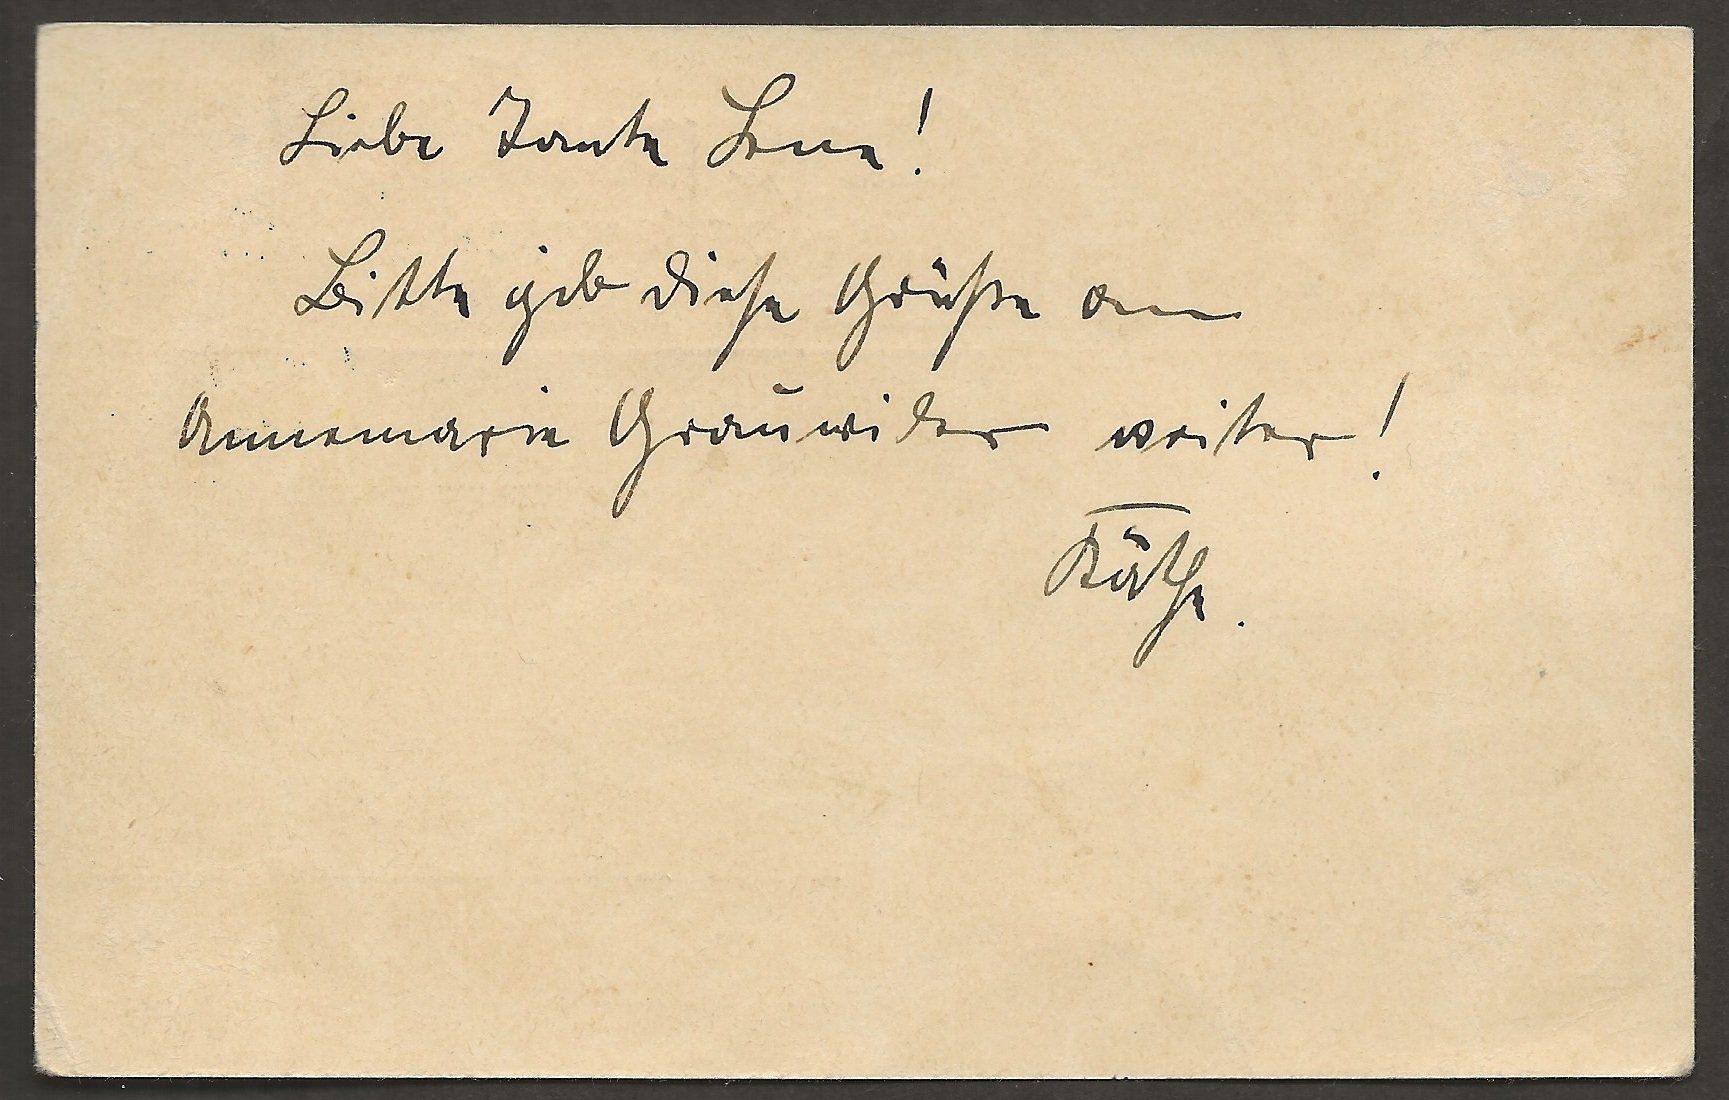 Liebe Tante Lene!
Bitte gib diese Grüße an
Annemarie Grauwiler weiter!
Käthe.